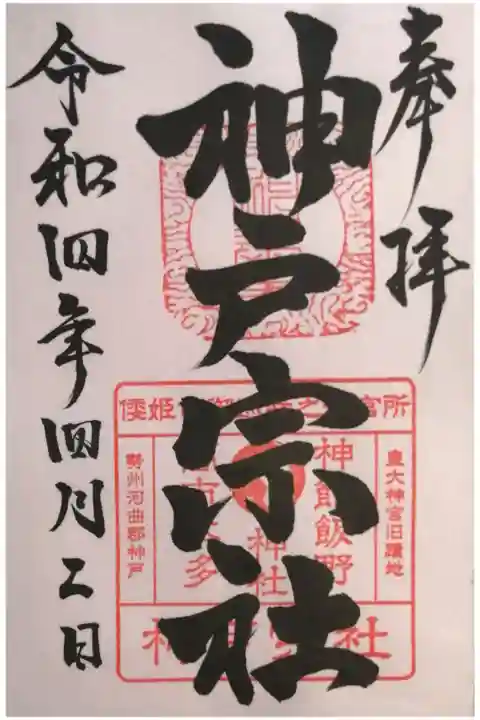 奉拝
神戸宗社
令和四年四月二日
皇大神宮旧蹟地
神館飯野
神社
多
勢州河曲郡神戸
倭姫
宮所
社